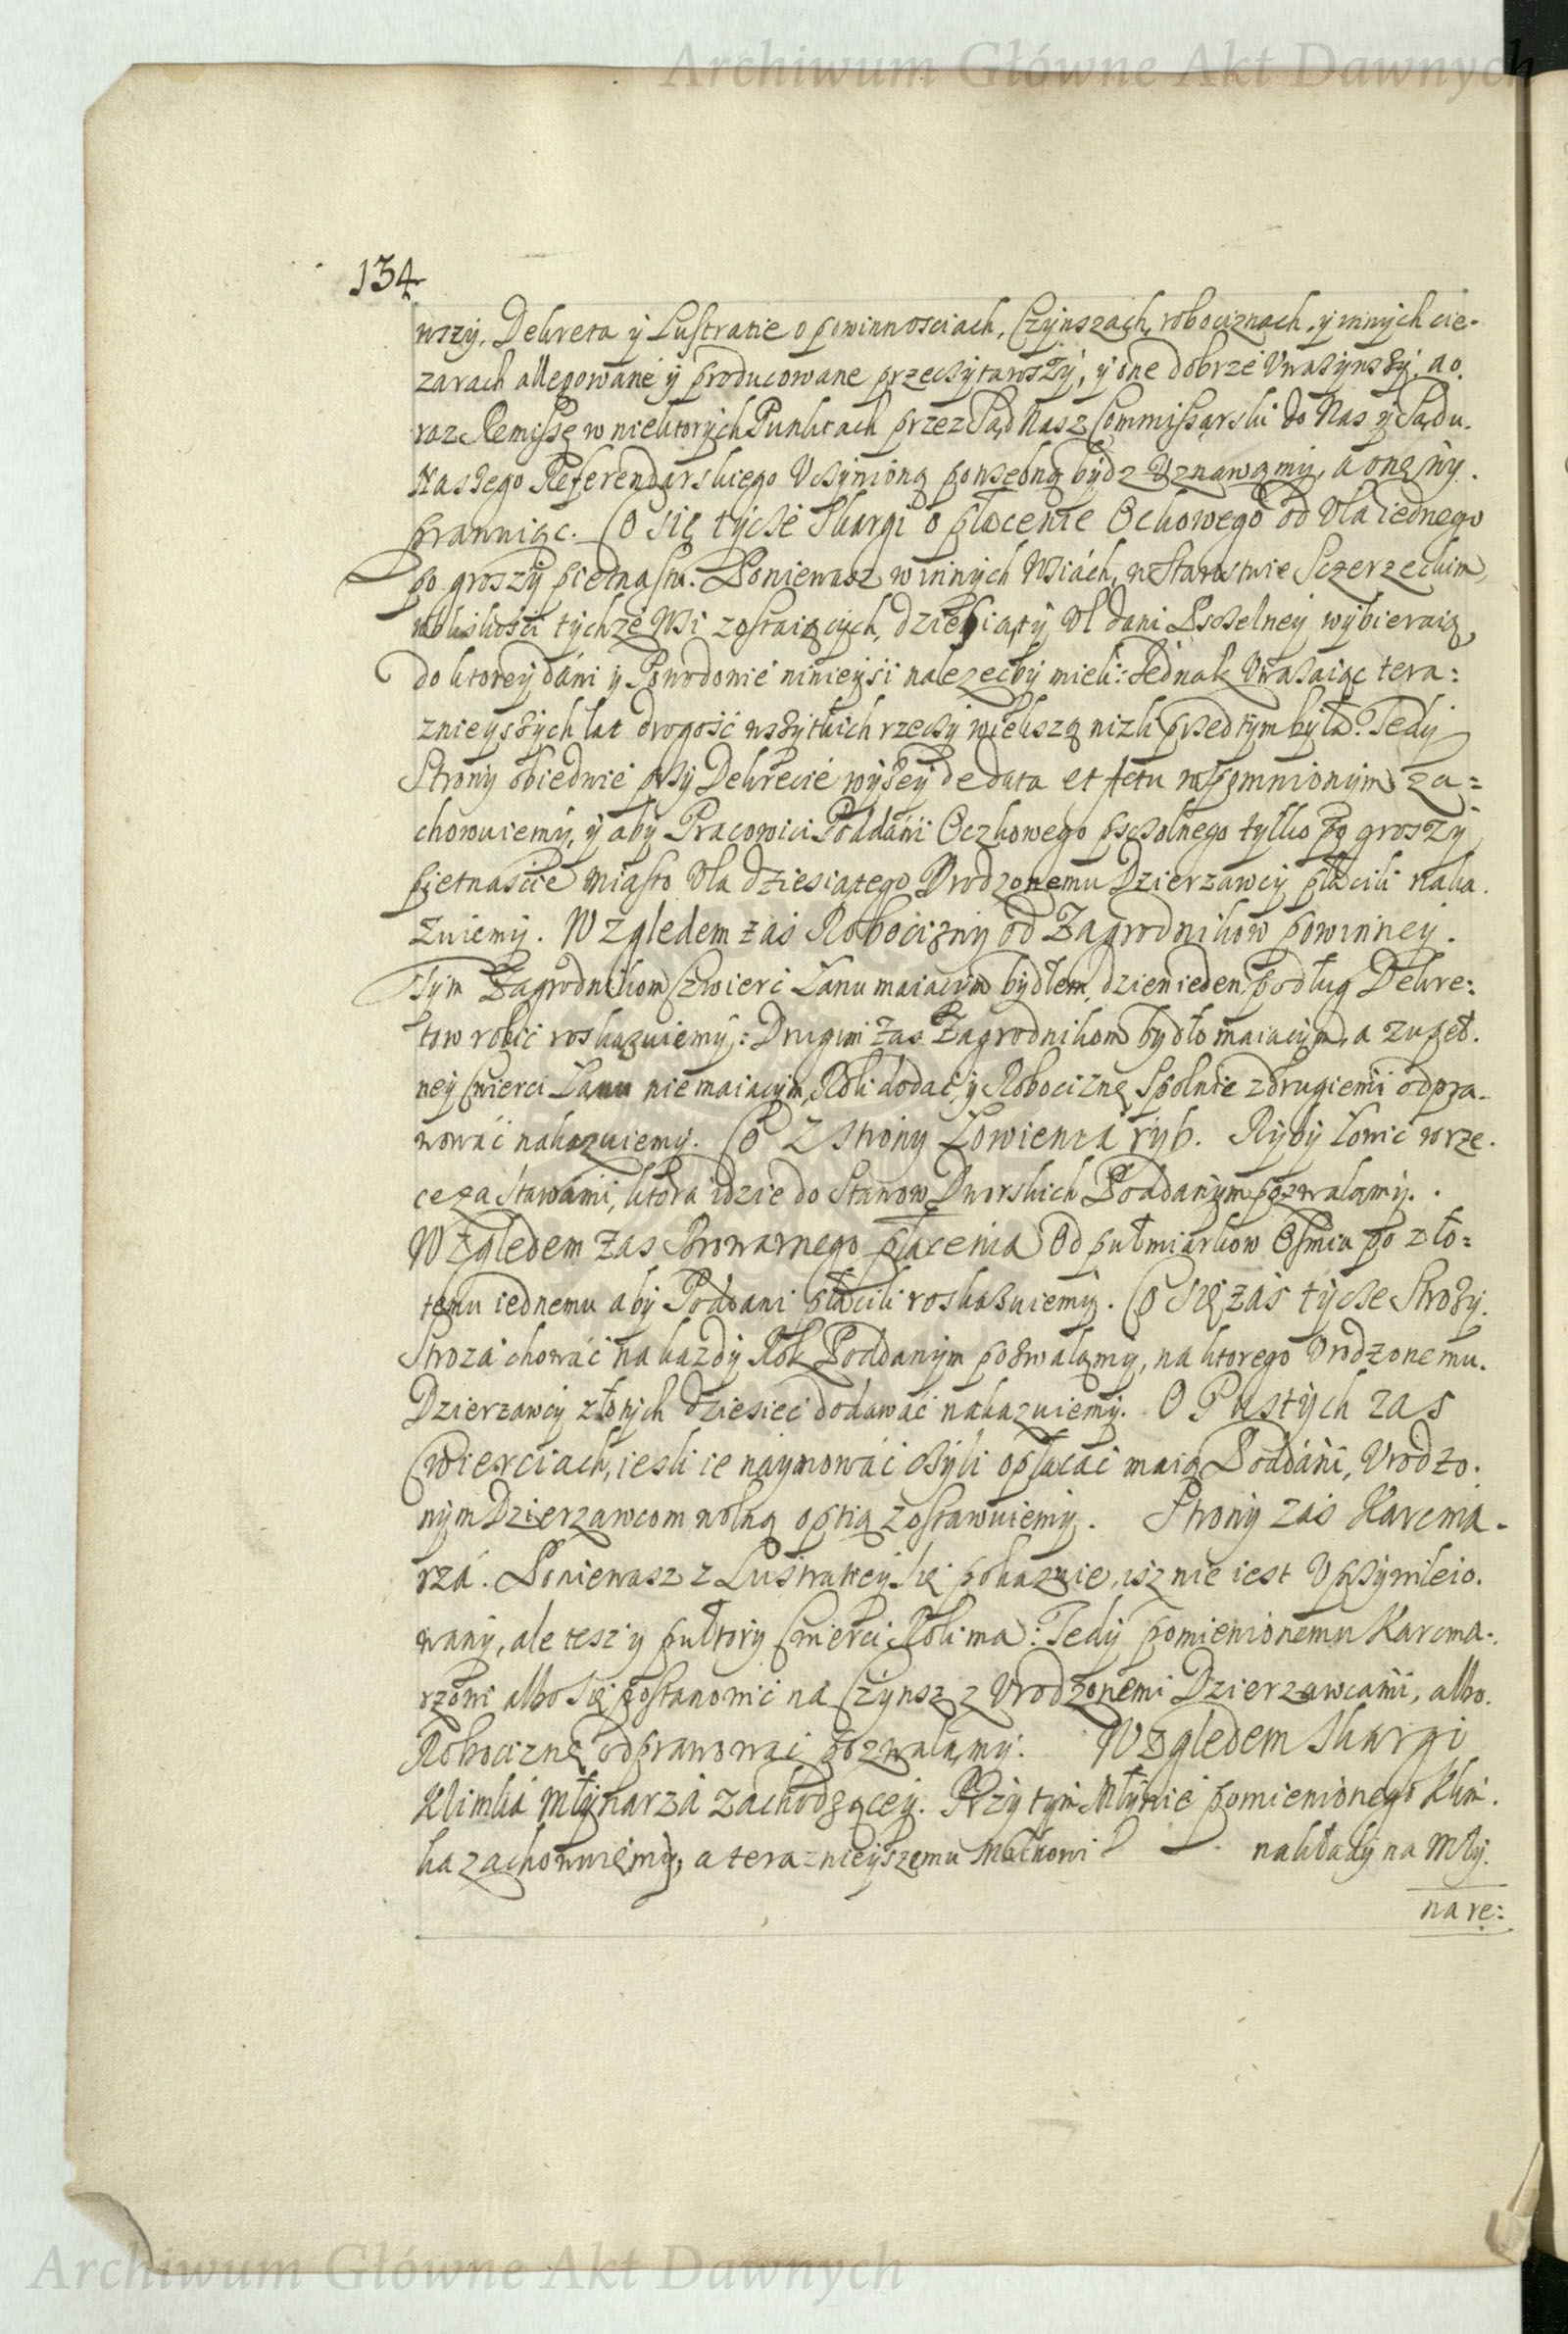 Archiwum Główne Akt Dawnych
134
wszy, Dekreta y Lustratie o powinnosciach, Czynszach, robociznach, y innych cie-
zarach allegowane y producowane przeczytawszy, y one dobrze Uwazywszy, a o.
raz Remissę w niektorych Punktach przez Sąd Nasz Commissarski do Nas y Sądu.
Naszego Referendarskiego Uczynioną ponsedną bydz Uznawamy, a onę wy.
prawuiąc. Co się tycze Skargi o płacenie Ockowego od Ula iednego
po groszy pietnastu. Poniewasz w innych Wsiách, w Starostwie Sczerzeckim
wbliskosci tychze Wsi zostaiących, dziesiąty Ul dani Pszczelney wybieraią,
do ktorey dáni y Powodowie ninieysi nalezecby mieli: Jednak Uwazaiąc tera:
znieyszych lat drogość wszytkich rzeczy wiekszą nizli przedtym była: Tedy
Strony obiedwie przy Dekrecié wyzey de data et actu wspomnionym za=
chowuiemy, y aby Pracowici Poddáni Oczkowego pszczolnego tylko po groszy
pietnascie miasto Ula dziesiątego Urodzonemu Dzierzawcy płacili naka.
zuiemy. Względem zaś Robocizny od Zagrodnikow powinney.
Tym Zagrodnikom Czwierć Łanu maiącym bydłem, dzien ieden podług Dekre:
tow robić roskazuiemy: Drugim zas Zagrodnikom bydło maiącym, a zupeł.
ney Cwierci Łanu nie maiącym, Roli dodać, y Robociznę Spolnie z drugiemi odpra-
wować nakazuiemy. Co Z strony Łowienia ryb. Ryby Łowić w rze.
ce za stawámi, ktora idzie do Stawow Dworskich Poddanym pozwalamy.
Względem zas Browarnego płacenia Od pułmiarkow Osmiu po zło=
temu iednemu aby Poddani płacili roskazuiemy. Co Się zaś tycze Strozy.
Stroza chować na kazdy Rok Poddanym pozwalamy, na ktorego Urodzonemu.
Dzierzawcy złotych dziesieć dodawać nakazuiemy. O Pustych zas
Cwierciach, iesli ie naymować czyli opłacać maią Poddáni, Urodzo.
nym Dzierzawcom wolną optią zostawuiemy. Strony zaś Karcmá-
rzá. Poniewasz z Lustratiey się pokazuie, isz nie iest Uprzywileio.
wany, ale tesz y pułtory Cwierci Roli ma: Tedy pomienionemu Karcma-
rzowi albo Się postanowić na Czynsz z Urodzonemi Dzierzawcami, albo.
Robociznę odprawować pozwalamy. Względem Skargi
Klimká Młynarzá zachodzącey. Przy tym Młynie pomienionego Klim.
ka zachowuiemy, a teraznieyszemu Mackowi nakłady na Mły.
na re:
Archiwum Główne Akt Dawnych